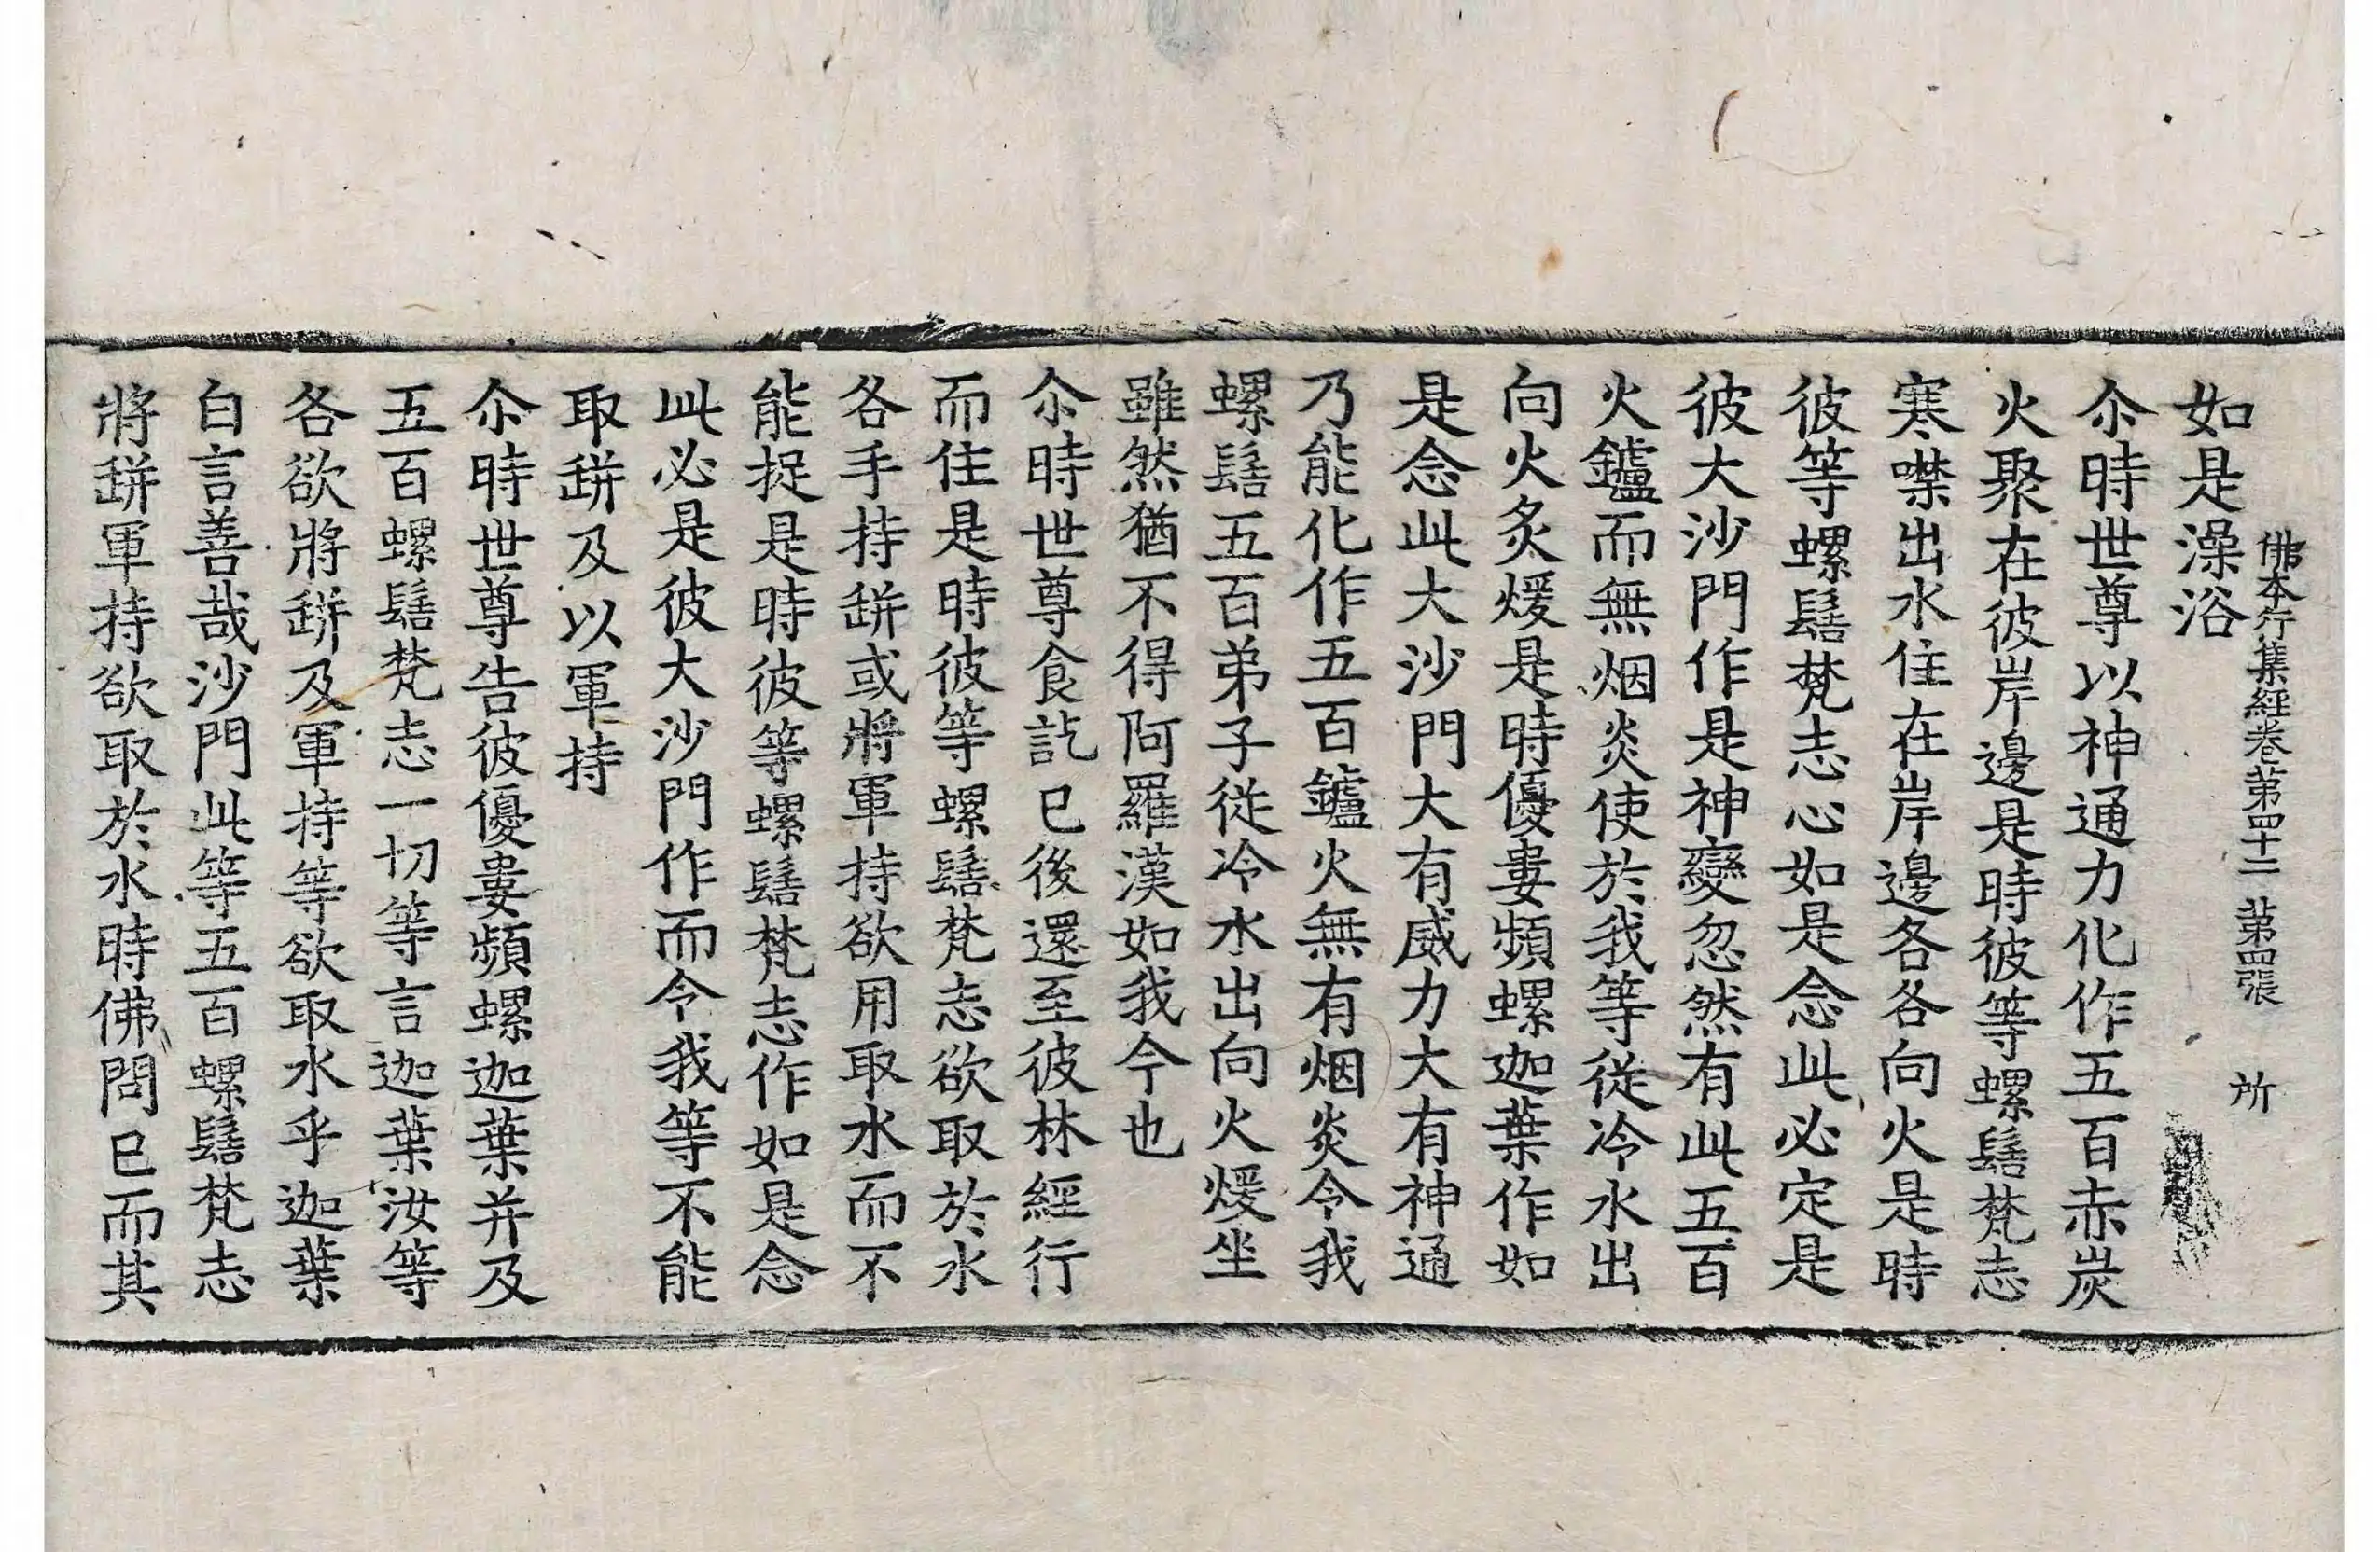 佛本行集經卷第四十二 第四張 所
如是澡浴
尒時世尊以神通力化作五百赤炭
火聚在彼岸邊是時彼等螺髻梵志
寒噤出水住在岸邊各各向火是時
彼等螺髻梵志心如是念此必定是
彼大沙門作是神變忽然有此五百
火鑪而無烟炎使於我等從冷水出
向火炙煖是時優婁頻螺迦葉作如
是念此大沙門大有威力大有神通
乃能化作五百鑪火無有烟炎令我
螺髻五百弟子從冷水出向火煖坐
雖然猶不得阿羅漢如我今也
尒時世尊食訖已後還至彼林經行
而住是時彼等螺髻梵志欲取於水
各手持缾或將軍持欲用取水而不
能捉是時彼等螺髻梵志作如是念
此必是彼大沙門作而令我等不能
取缾及以軍持
尒時世尊告彼優婁頻螺迦葉并及
五百螺髻梵志一切等言迦葉汝等
各欲將缾及軍持等欲取水乎迦葉
白言善哉沙門此等五百螺髻梵志
將缾軍持欲取於水時佛問已而其